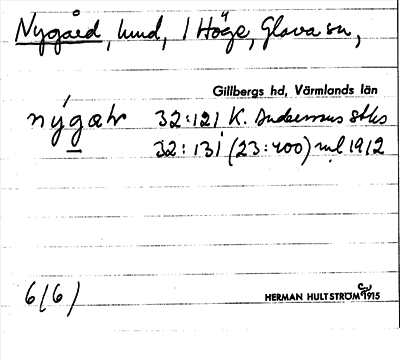 Nygård, lund, i Höge, Glava sn,
Gillbergs hd, Värmlands län
nýgatr 32:121 K. Anderssons stks
32:131 (23:400) ml 1912
6/6)
HERMAN HULTSTRÖM 1915